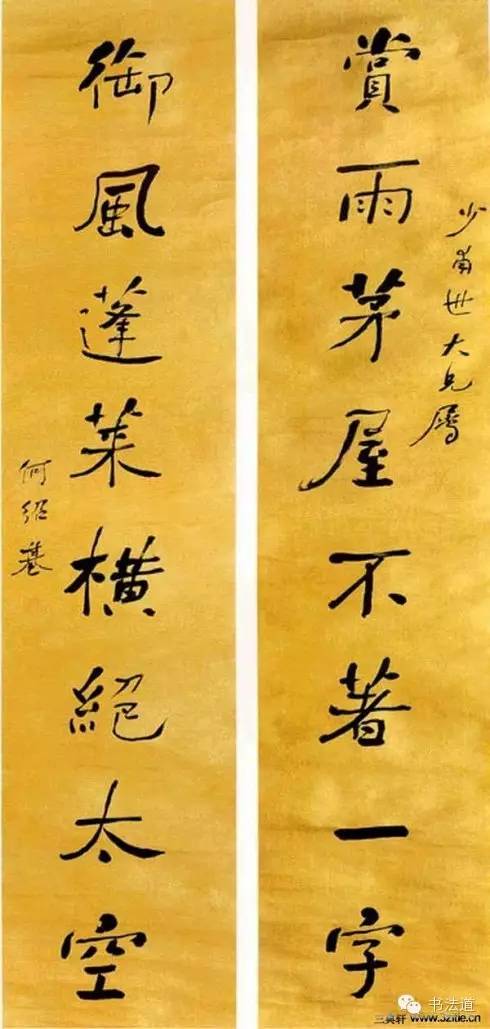 賞雨茅屋不著一字
少甫世大兄屬
御風蓬萊橫絕太空
何紹基
书法道